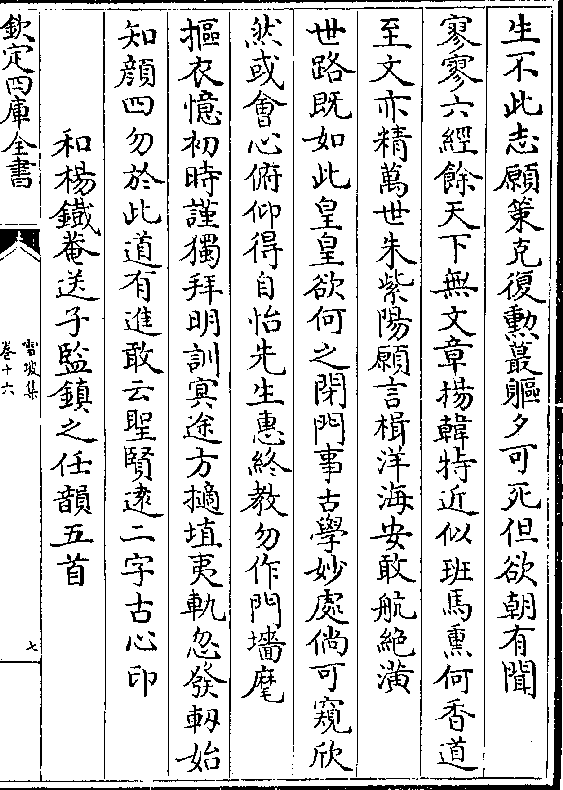 生不此志願策克復勲蕞軀夕可死但欲朝有聞
寥寥六經餘天下無文章揚韓特近似班馬熏何香道
至文亦精萬世朱紫陽願言楫洋海安敢航絶潢
世路既如此皇皇欲何之閉門事古學妙處倘可窺欣
然或會心俯仰得自怡先生惠終教勿作門墻麾
摳衣憶初時謹獨拜明訓冥途方擿埴夷軌忽發軔始
知顔四勿於此道有進敢云聖賢逺二字古心印
和楊鐵菴送子監鎮之任韻五首
欽定四庫全書
雪坡集
卷十六
七